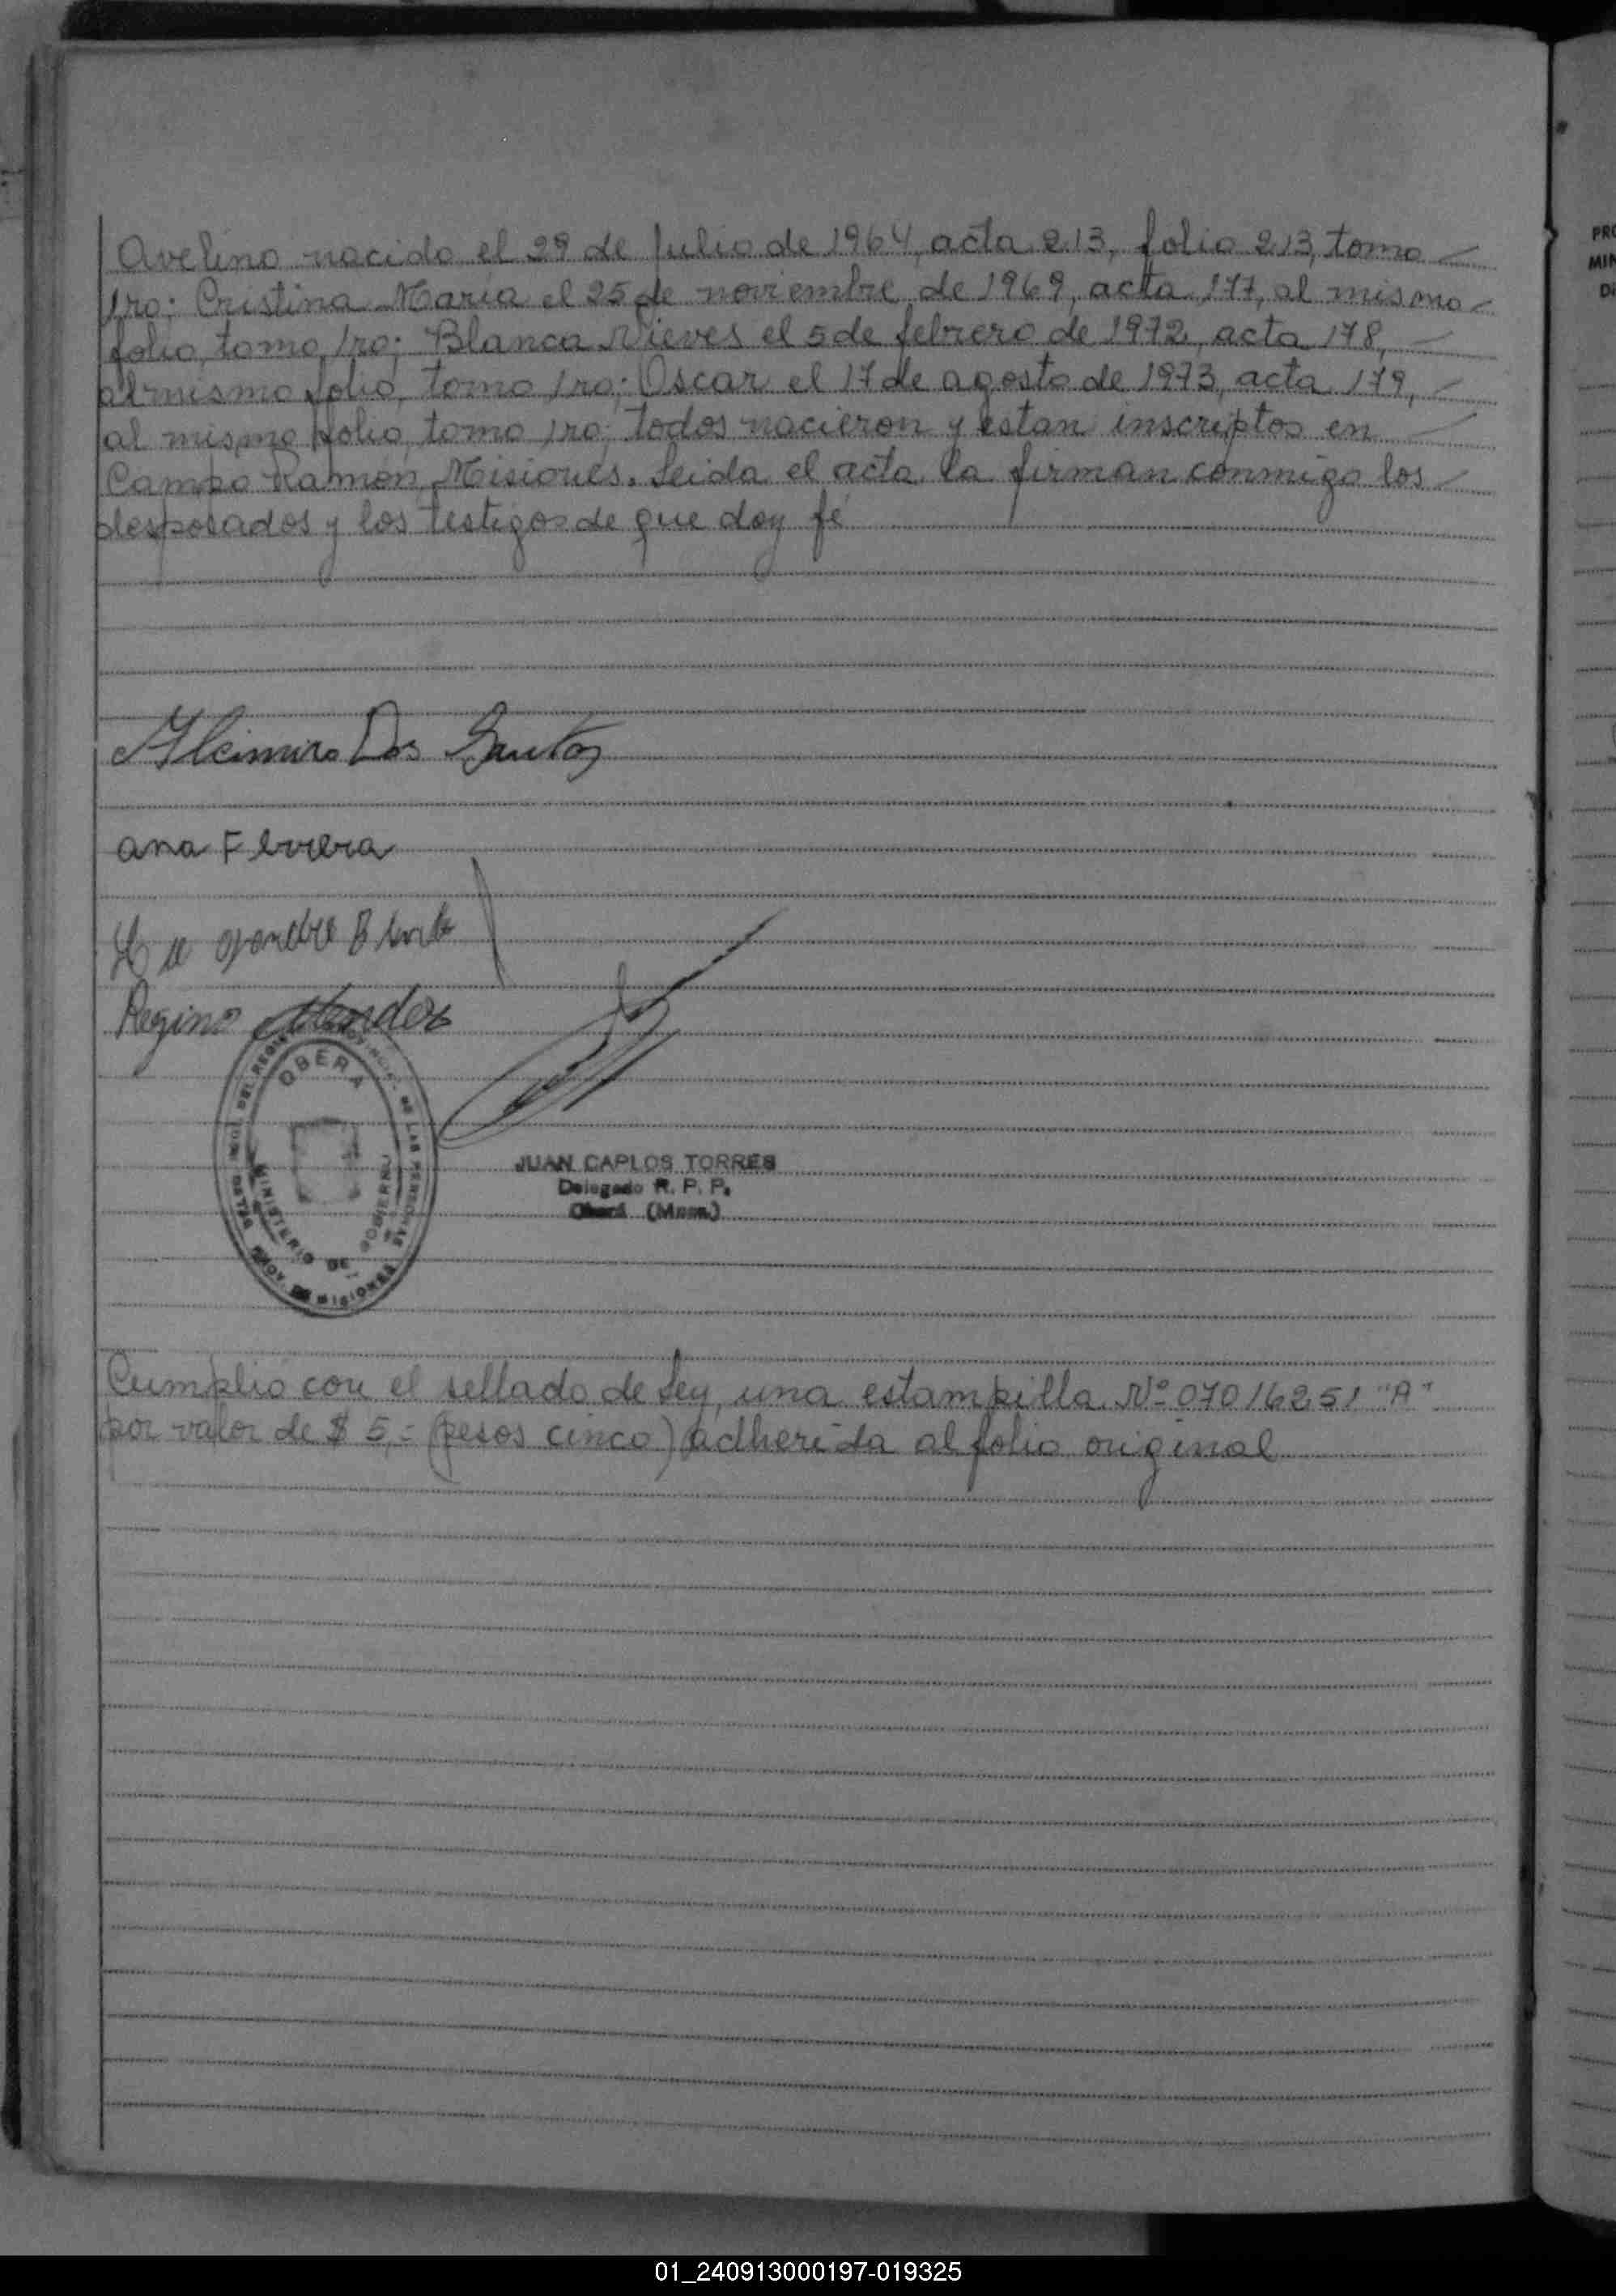 Avelino nacido el 29 de Julio de 1964, acta 213, folio 213, tomo
1ro; Cristina Maria el 25 de noviembre de 1969, acta 177, al mismo
folio, tomo 1ro; Blanca Nieves el 5 de febrero de 1972, acta 178,
al mismo folio, tomo 1ro; Oscar el 17 de agosto de 1973, acta 179,
al mismo folio, tomo 1ro; todos nacieron y estan inscriptos en
Campo Ramón, Misiones. Leida el acta la firman conmigo los
desposados y los testigos de que doy fé
Alcimiro Dos Santos
ana Ferrera
Regino
OBERA
MINISTERIO DE GOBIERNO
DE LAS PERSONAS
PROV. DE MISIONES
JUAN CARLOS TORRES
Delegado R. P. P.
Oberá (Mnes.)
Cumplió con el sellado de Ley, una estampilla Nº 07016251 "A"
por valor de $ 5,= (pesos cinco) adherida al folio original
PRO
MIN
01_240913000197-019325